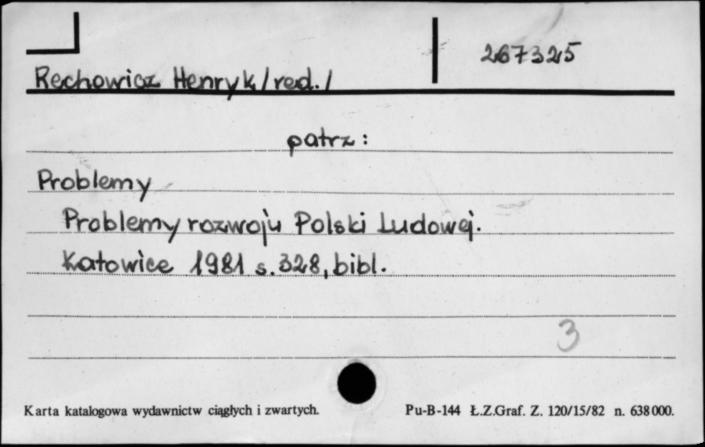 267325
Rechowicz Henryk /red./
patrz:
Problemy
Problemy rozwoju Polski Ludowej.
Katowice 1981 s. 328, bibl.
3
Karta katalogowa wydawnictw ciągłych i zwartych. Pu-B-144 Ł.Z.Graf. Z. 120/15/82 n. 638000.